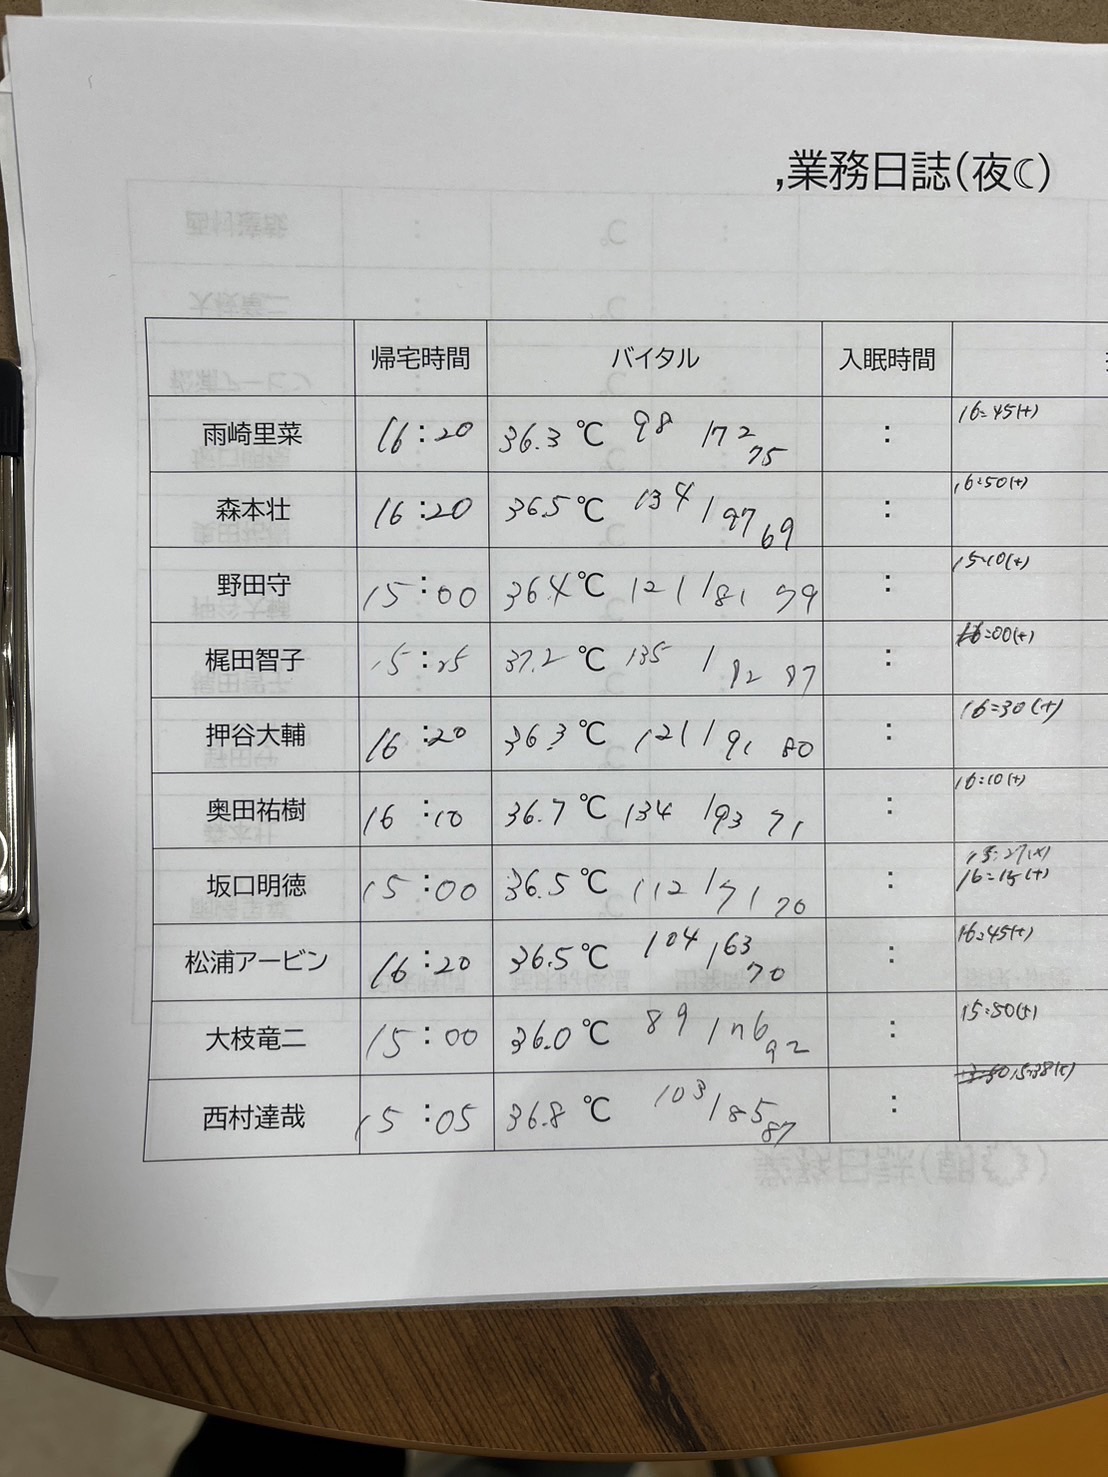 ,業務日誌(夜☾)
帰宅時間 バイタル 入眠時間
雨崎里菜 16:20 36.3℃ 98 /72 75 : 16:45(+)
森本壮 16:20 36.5℃ 134/97 69 : 16:50(+)
野田守 15:00 36.4℃ 121/81 79 : 15:10(+)
梶田智子 15:25 37.2℃ 135/92 87 : 16:00(+)
押谷大輔 16:20 36.3℃ 121/91 80 : 16:30(+)
奥田祐樹 16:10 36.7℃ 134/93 71 : 16:10(+)
坂口明徳 15:00 36.5℃ 112/71 70 : 16:15(+)
松浦アービン 16:20 36.5℃ 104/63 70 : 16:45(+)
大枝竜二 15:00 36.0℃ 89 92 : 15:50(+)
西村達哉 15:05 36.8℃ 103/85 87 : 15:38(+)
業務日誌(朝